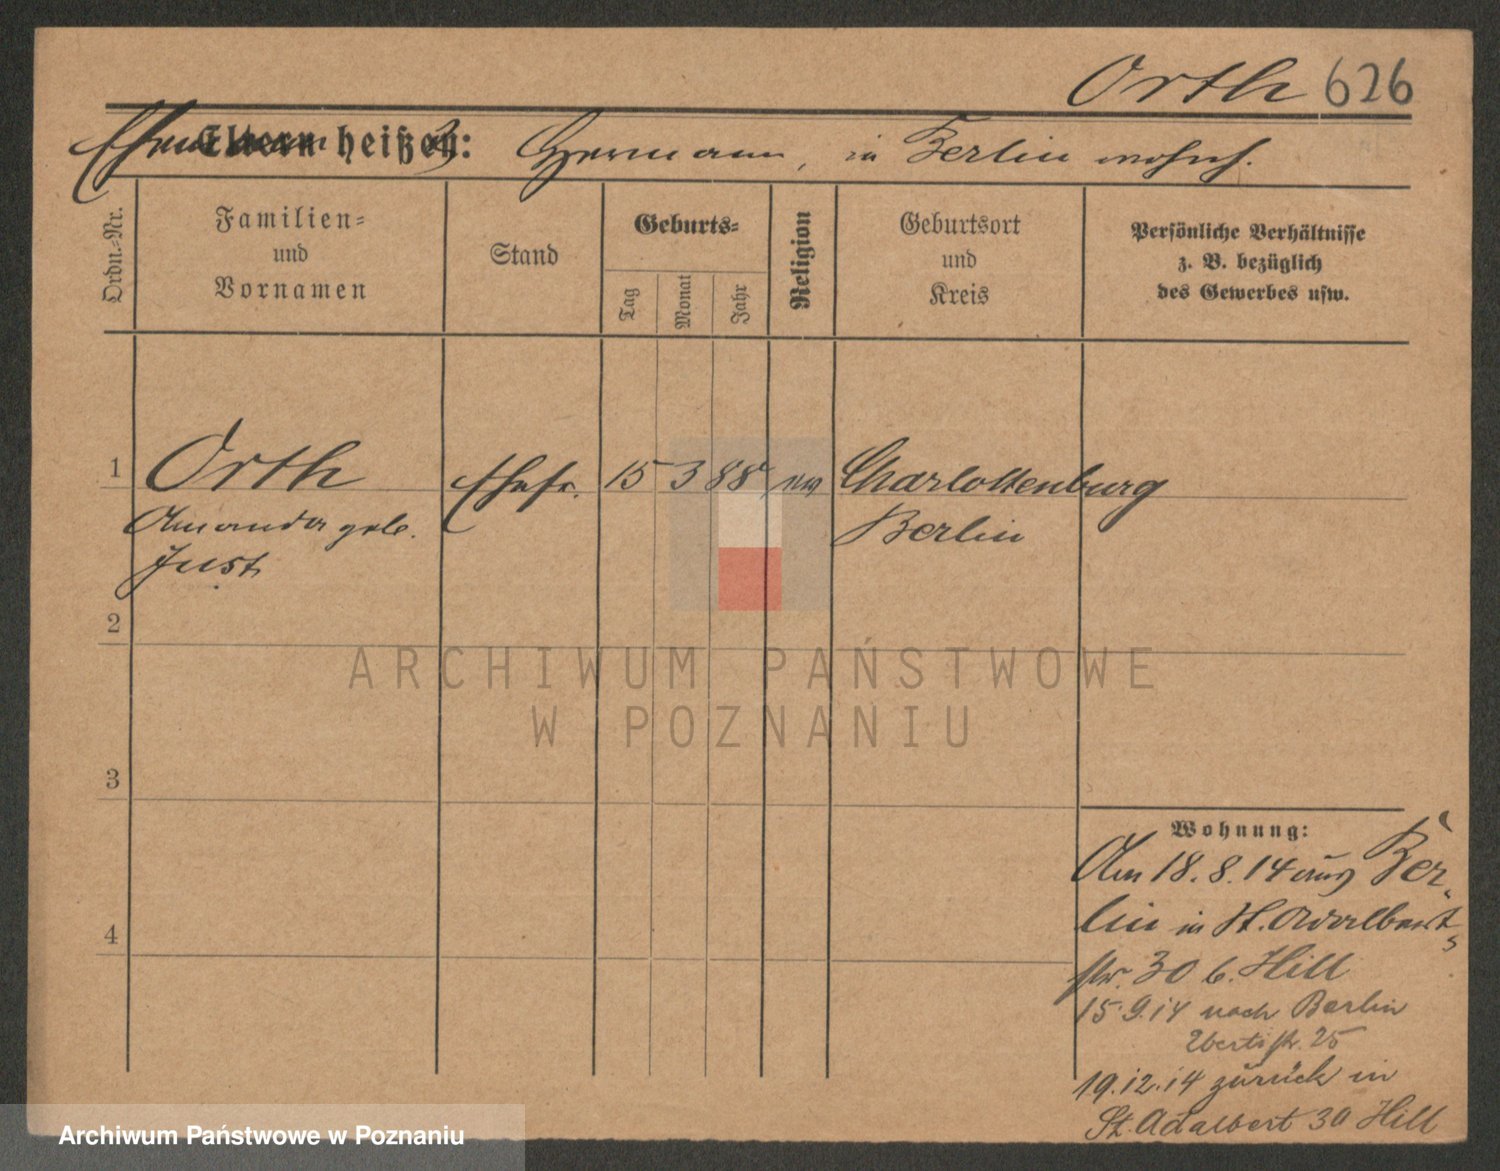 Orth 626
Ehemann heißt: Hermann, in Berlin wohnh.
Ordn.-Nr.
Familien-
und
Vornamen
Stand
Geburts-
Tag
Monat
Jahr
Religion
Geburtsort
und
Kreis
Persönliche Verhältnisse
z. B. bezüglich
des Gewerbes usw.
1 Orth Ehefr. 15 3 88 ev Charlottenburg
Amanda geb. Berlin
Just
2
3
4
Wohnung:
Am 18.8.14 aus Ber-
lin in St. Adalbert-
str. 30 b. Hill
15.9.14 nach Berlin
19.12.14 zurück in
St. Adalbert 30 Hill
ARCHIWUM PAŃSTWOWE
W POZNANIU
Archiwum Państwowe w Poznaniu